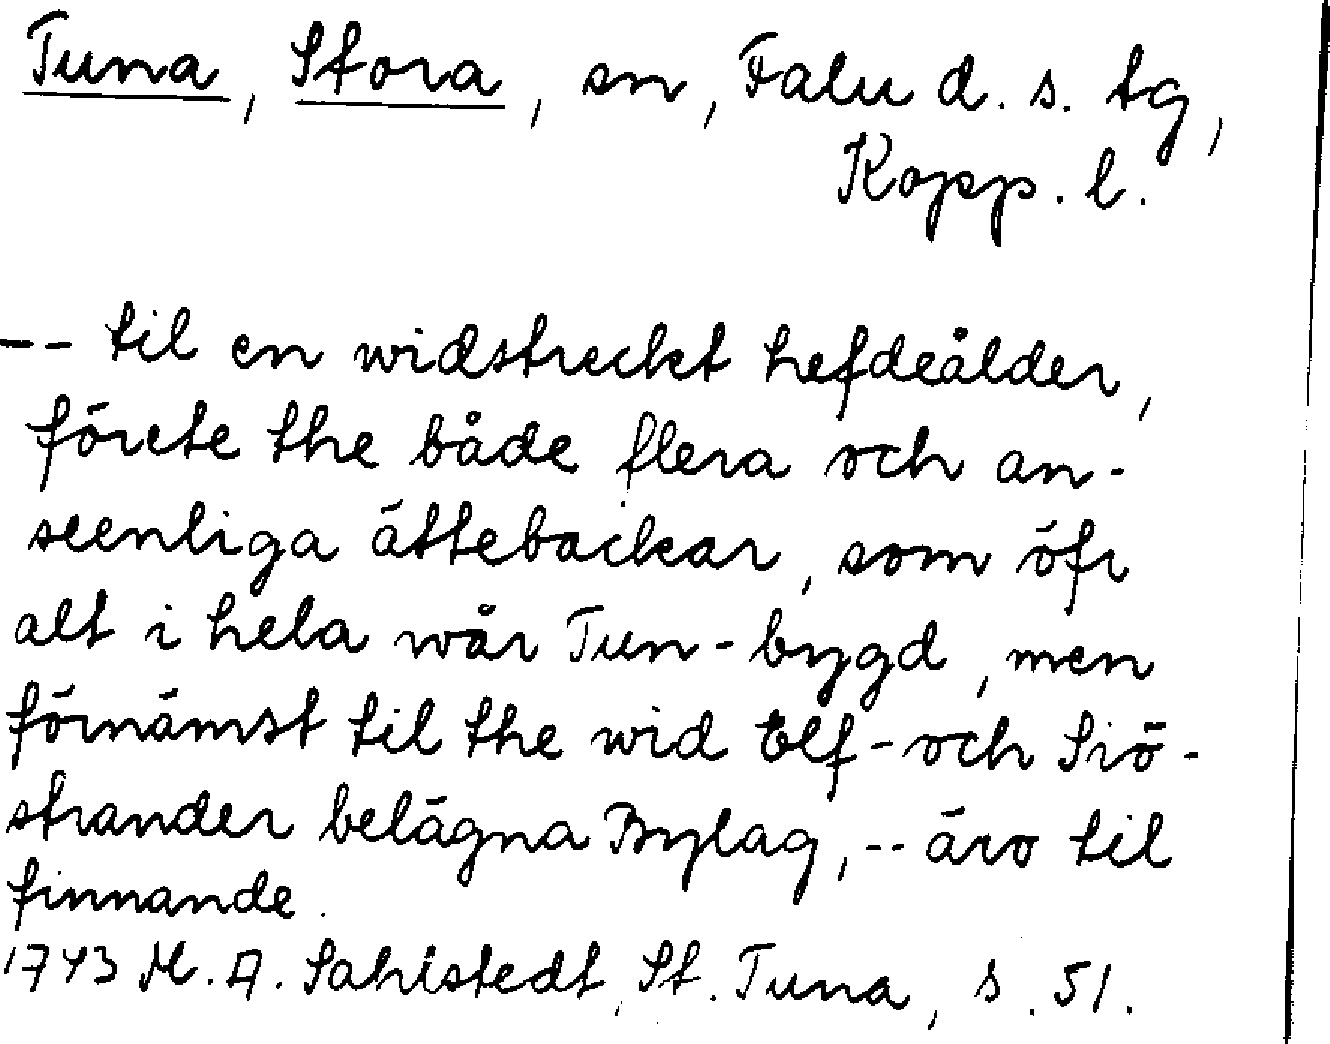 Tuna, Stora, sn, Falu d. s. tg,
Kopp. l.
-- til en widstreckt hefdeålder,
förete the både flera och an-
seenliga ättebackar, som öfr
alt i hela wår Tun-bygd, men
förnämst til the wid Elf- och Siö-
strander belägna Bylag, -- äro til
finnande.
1743 M. A. Sahlstedt, St. Tuna, s. 51.